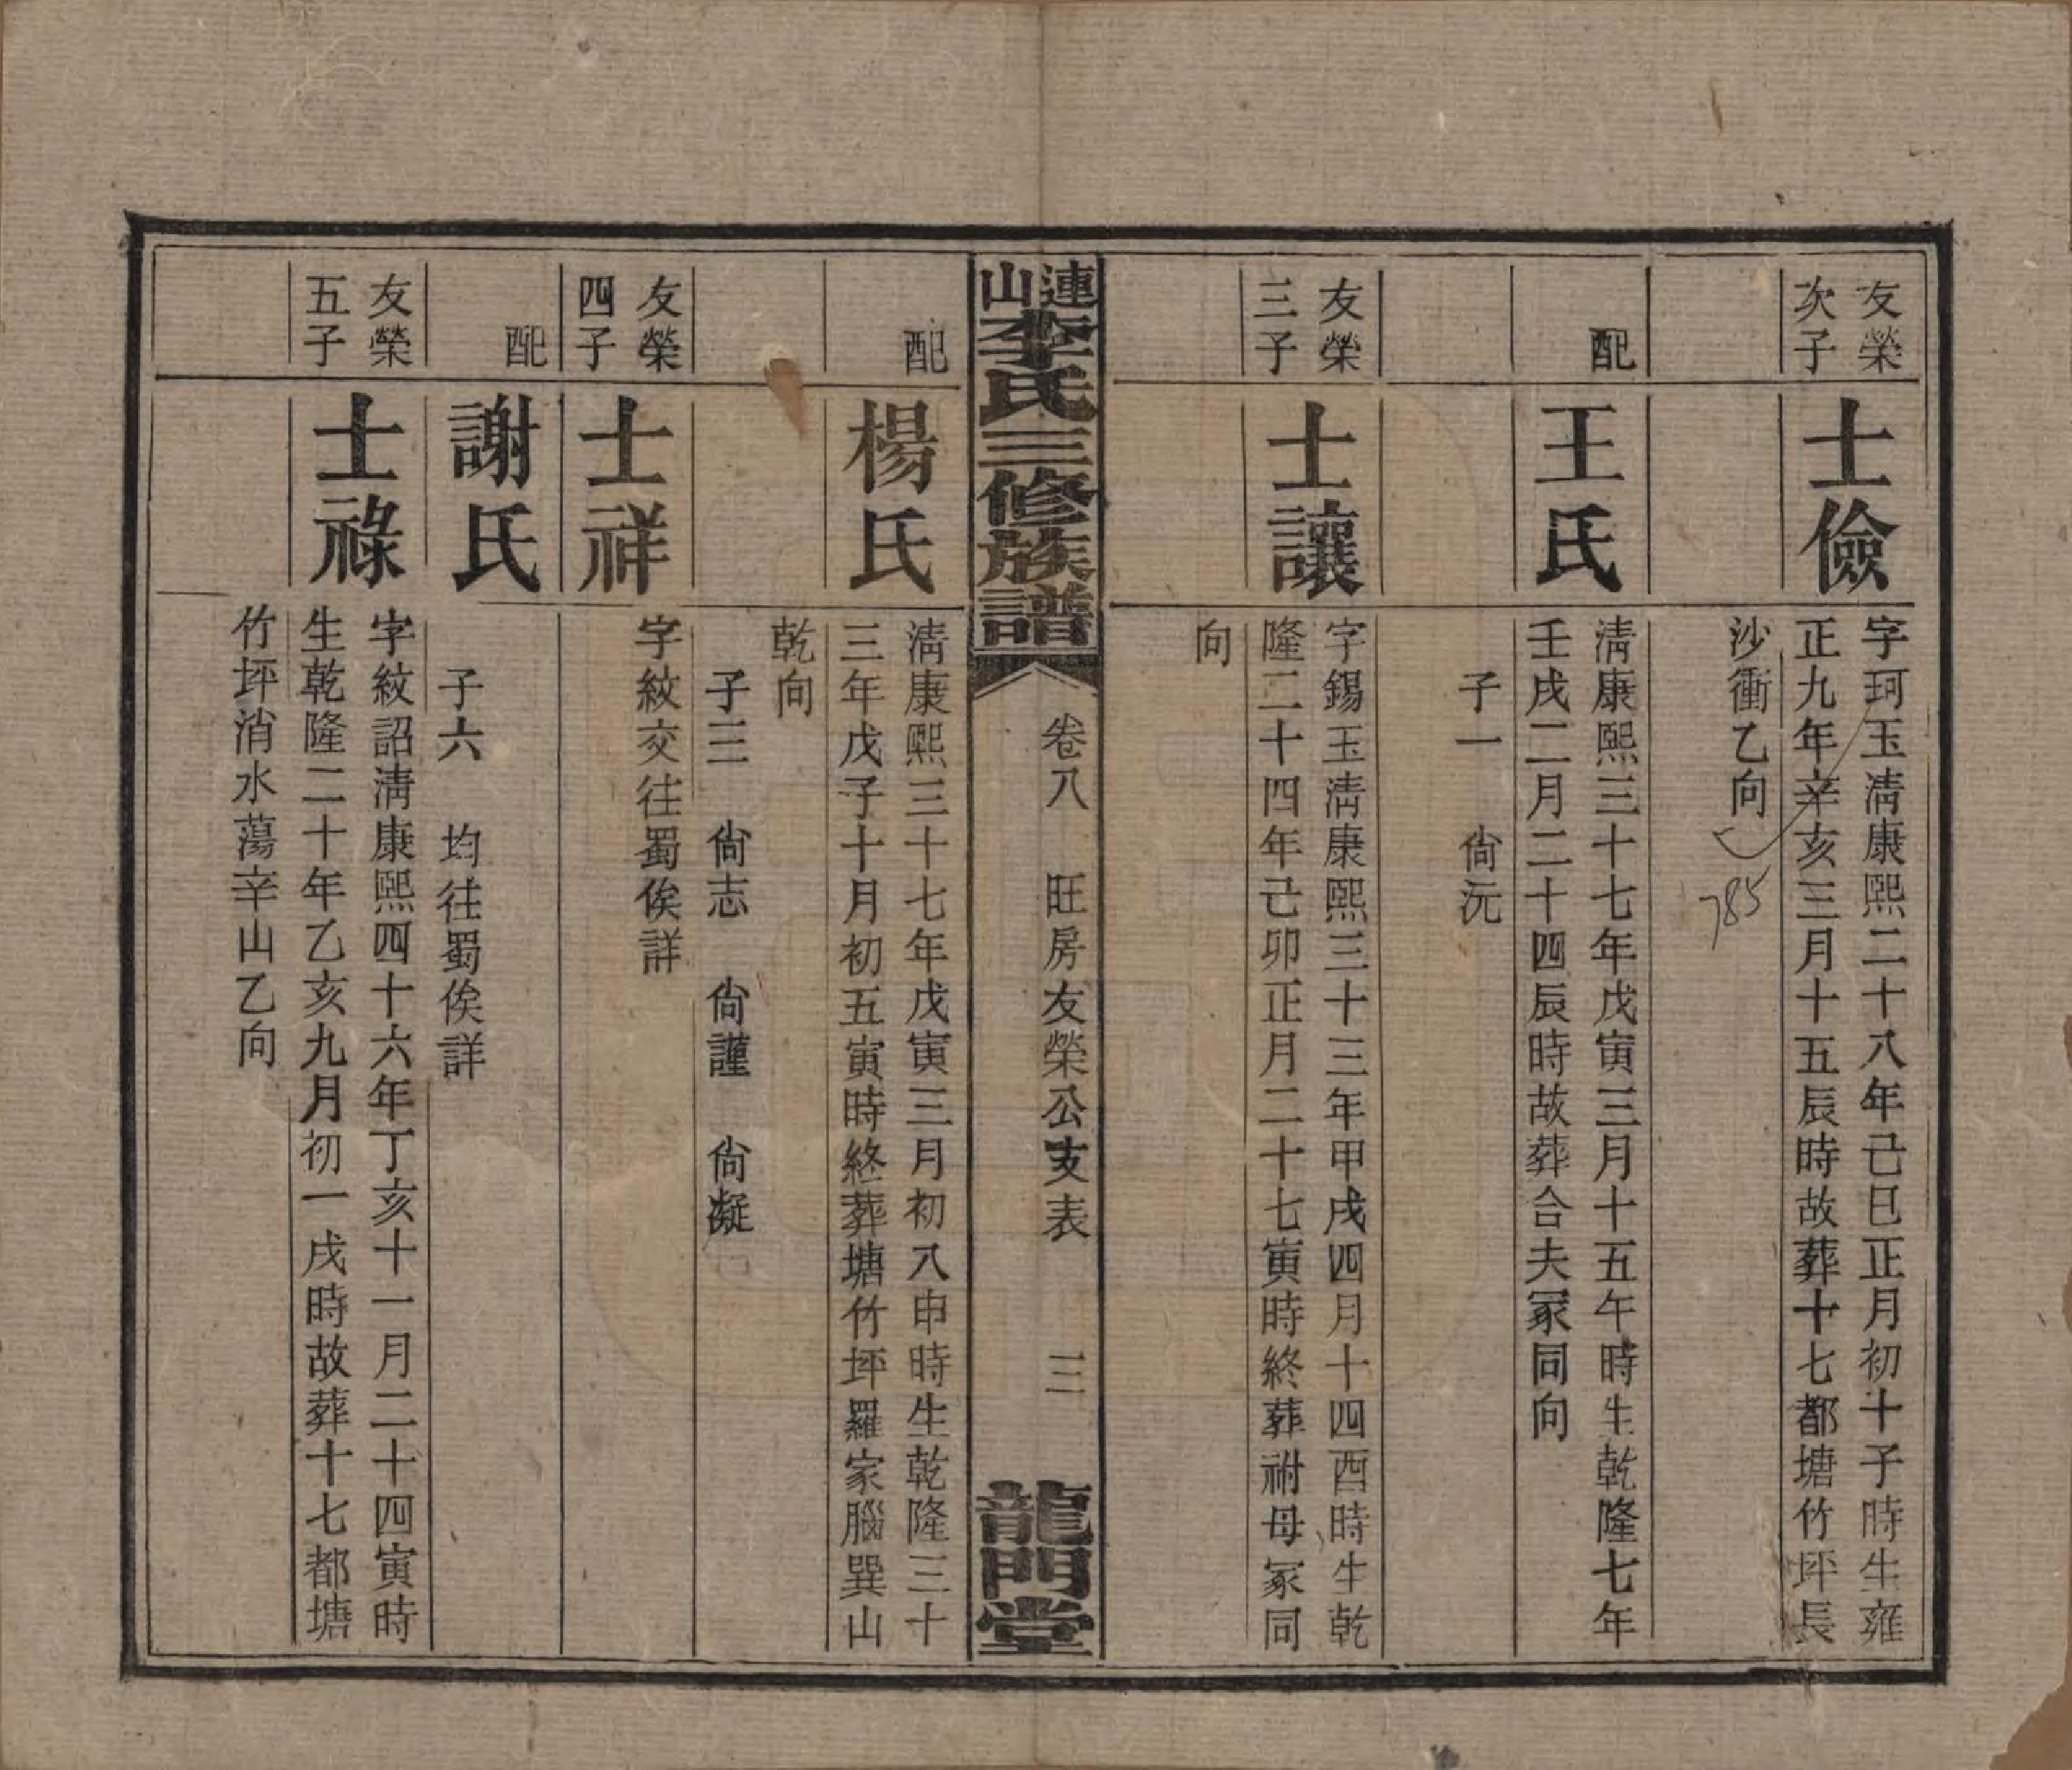 友榮
次子
士儉
字珂玉清康熙二十八年己巳正月初十子時生雍
正九年辛亥三月十五辰時故葬十七都塘竹坪長
沙衝乙向
785
配
王氏
清康熙三十七年戊寅三月十五午時生乾隆七年
壬戌二月二十四辰時故葬合夫冢同向
子一 尙沅
友榮
三子
士讓
字錫玉清康熙三十三年甲戌四月十四酉時生乾
隆二十四年己卯正月二十七寅時終葬祔母冢同
向
連山李氏三修族譜
卷八 旺房友榮公支表 三
龍門堂
配
楊氏
清康熙三十七年戊寅三月初八申時生乾隆三十
三年戊子十月初五寅時終葬塘竹坪羅家腦巽山
乾向
子三 尙志 尙謹 尙凝
友榮
四子
士祥
字紋交往蜀俟詳
配
謝氏
子六 均往蜀俟詳
友榮
五子
士祿
字紋詔清康熙四十六年丁亥十一月二十四寅時
生乾隆二十年乙亥九月初一戌時故葬十七都塘
竹坪消水蕩辛山乙向